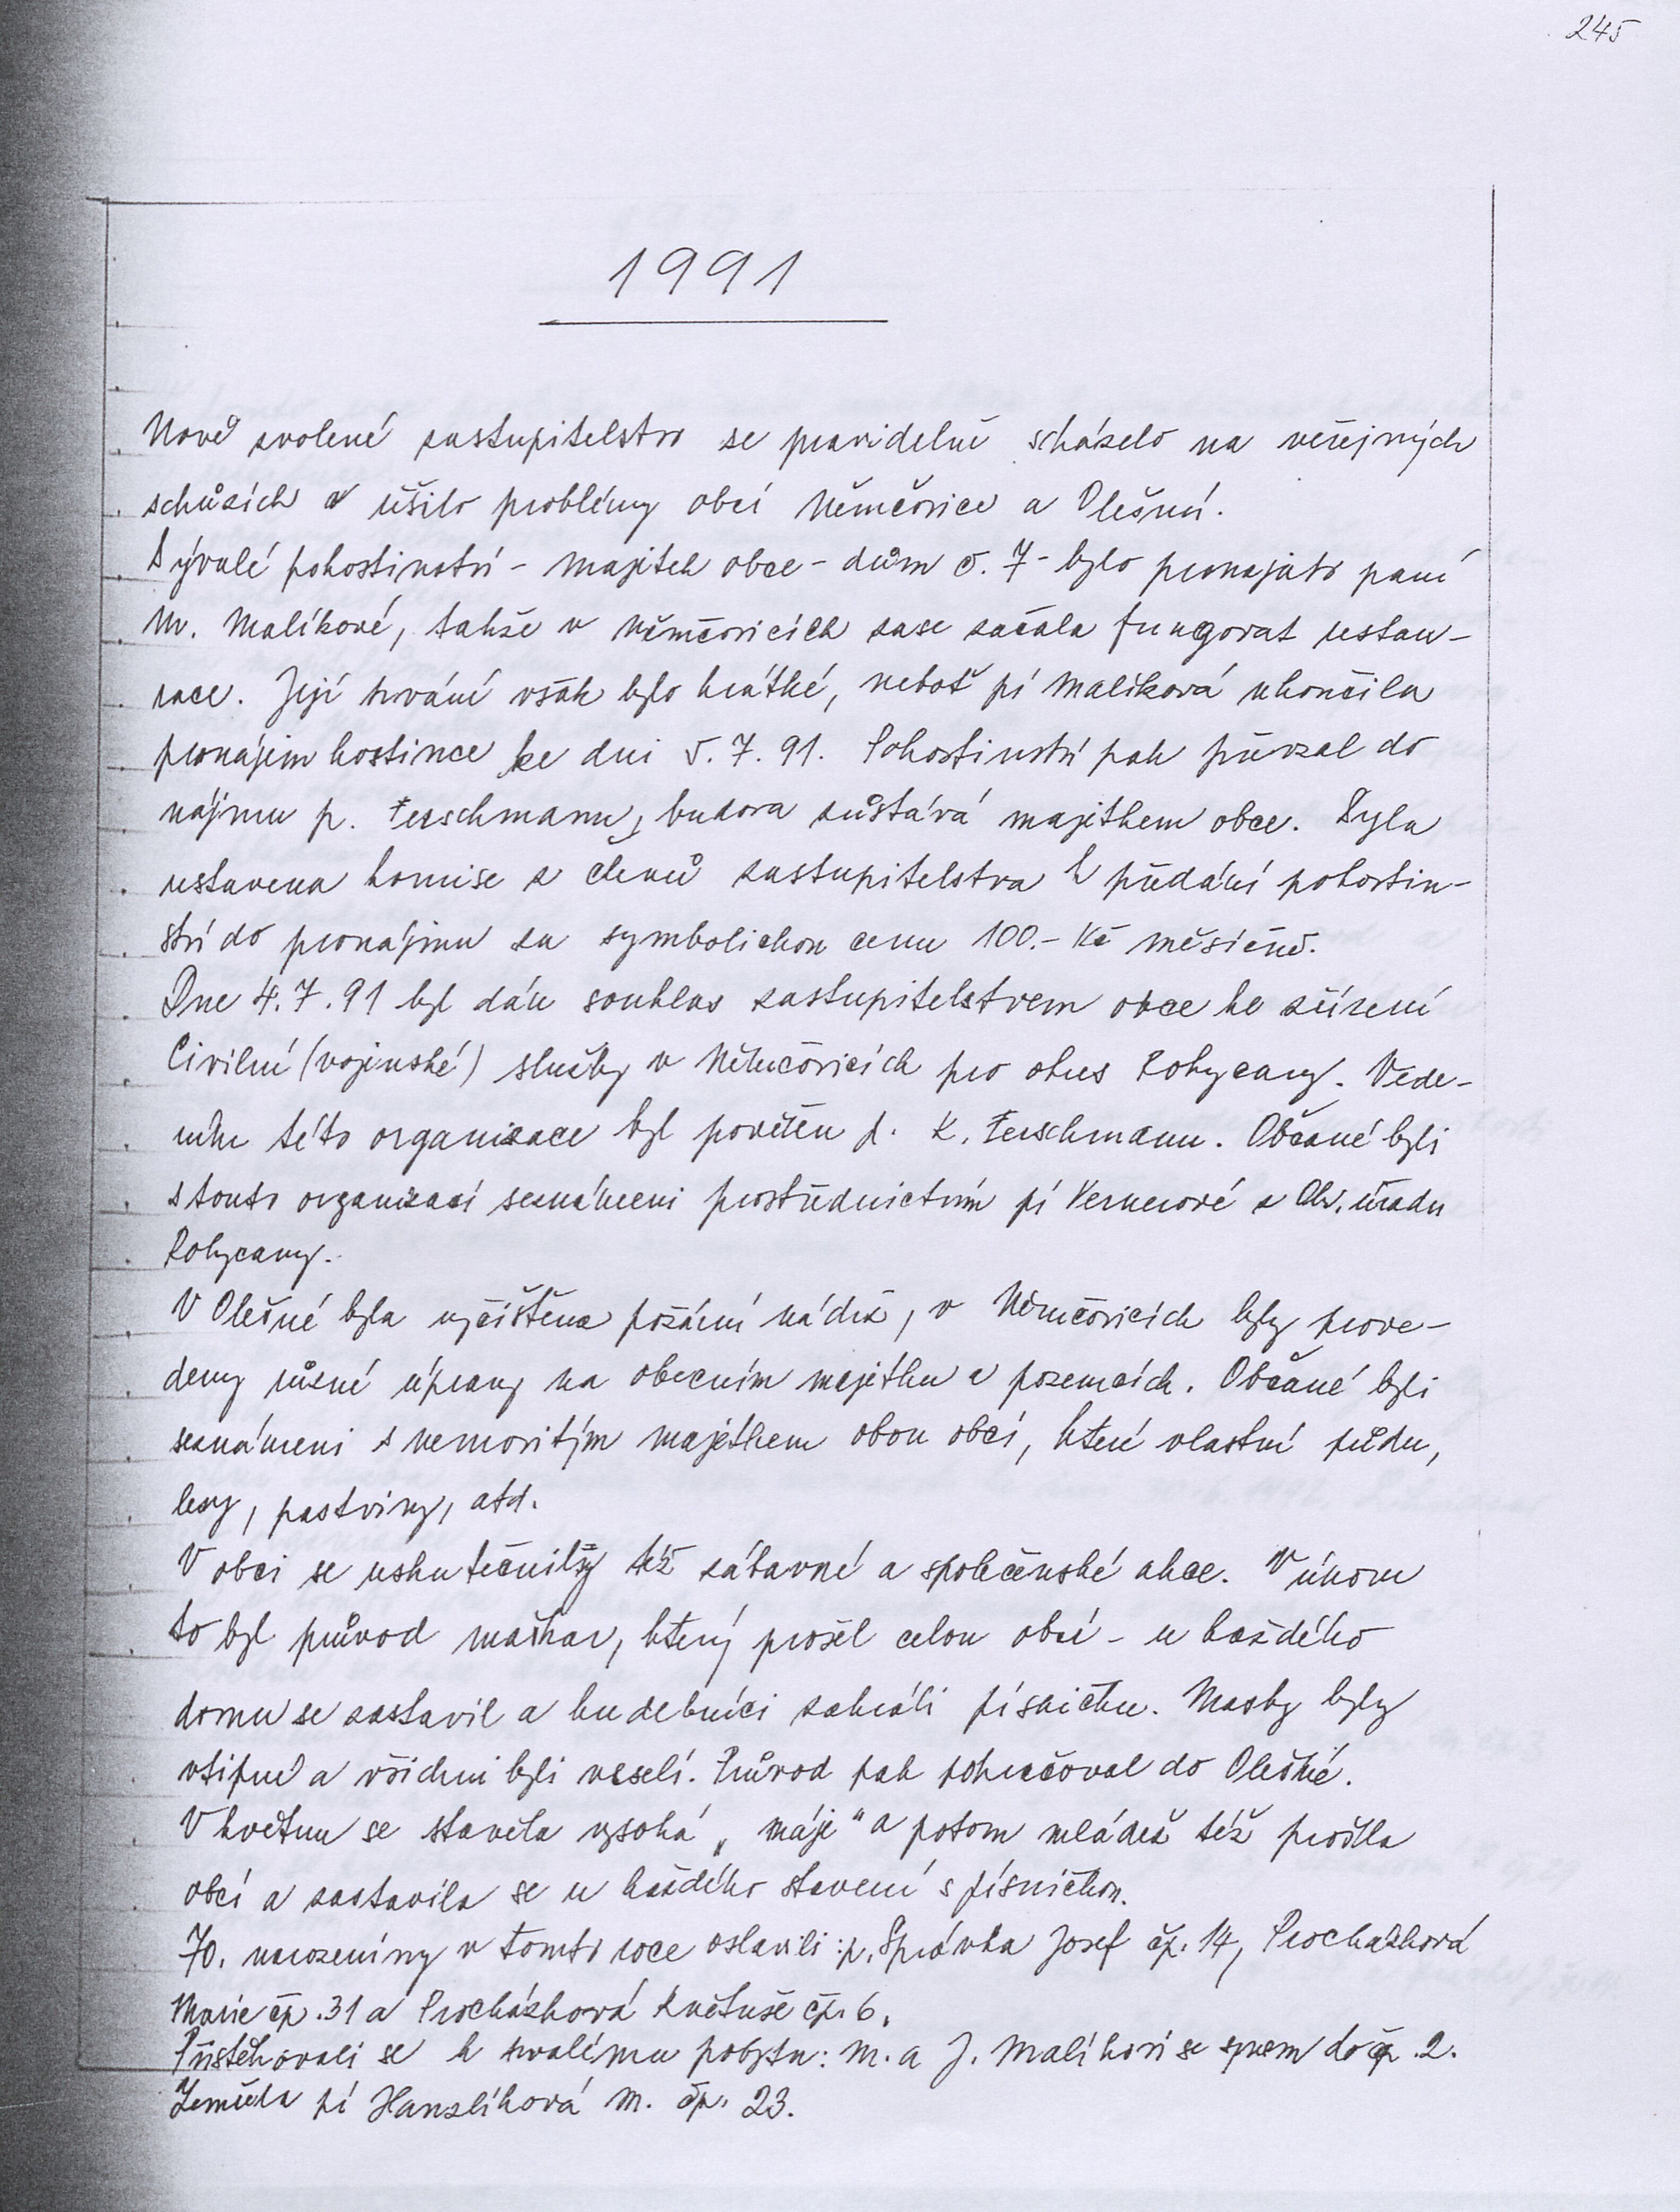 245
1991
Nově zvolené zastupitelstvo se pravidelně scházelo na veřejných
schůzích a řešilo problémy obcí Němčovice a Olešná.
Bývalé pohostinství - majetek obce - dům č. 7 - bylo pronajato paní
M. Malíkové, takže v Němčovicích zase začala fungovat restau-
race. Její trvání však bylo krátké, neboť pí Malíková ukončila
pronájem hostince ke dni 5. 7. 91. Pohostinství pak převzal do
nájmu p. Ferschmann, budova zůstává majetkem obce. Byla
ustavena komise z členů zastupitelstva k předání pohostin-
ství do pronájmu za symbolickou cenu 100.- Kč měsíčně.
Dne 4. 7. 91 byl dán souhlas zastupitelstvem obce ke zřízení
Civilní (vojenské) služby v Němčovicích pro okres Rokycany. Vede-
ním této organizace byl pověřen p. K. Ferschmann. Občané byli
s touto organizací seznámeni prostřednictvím pí Vernerové z Ok. úřadu
Rokycany.
V Olešné byla vyčištěna požární nádrž, v Němčovicích byly prove-
deny různé úpravy na obecním majetku a pozemcích. Občané byli
seznámeni s nemovitým majetkem obou obcí, které vlastní půdu,
lesy, pastviny, atd.
V obci se uskutečnily též zábavné a společenské akce. V únoru
to byl průvod maškar, který prošel celou obcí - u každého
domu se zastavil a hudebníci zahráli písničku. Masky byly
vtipné a všichni byli veselí. Průvod pak pokračoval do Olešné.
V květnu se stavěla vysoká „máje" a potom mládež též prošla
obcí a zastavila se u každého stavení s písničkou.
70. narozeniny v tomto roce oslavili: p. Správka Josef čp. 14, Procházková
Marie čp. 31 a Procházková Květuše čp. 6.
Přistěhovali se k trvalému pobytu: M. a J. Malíkovi se synem do čp. 2.
Zemřela pí Hanzlíková M. čp. 23.